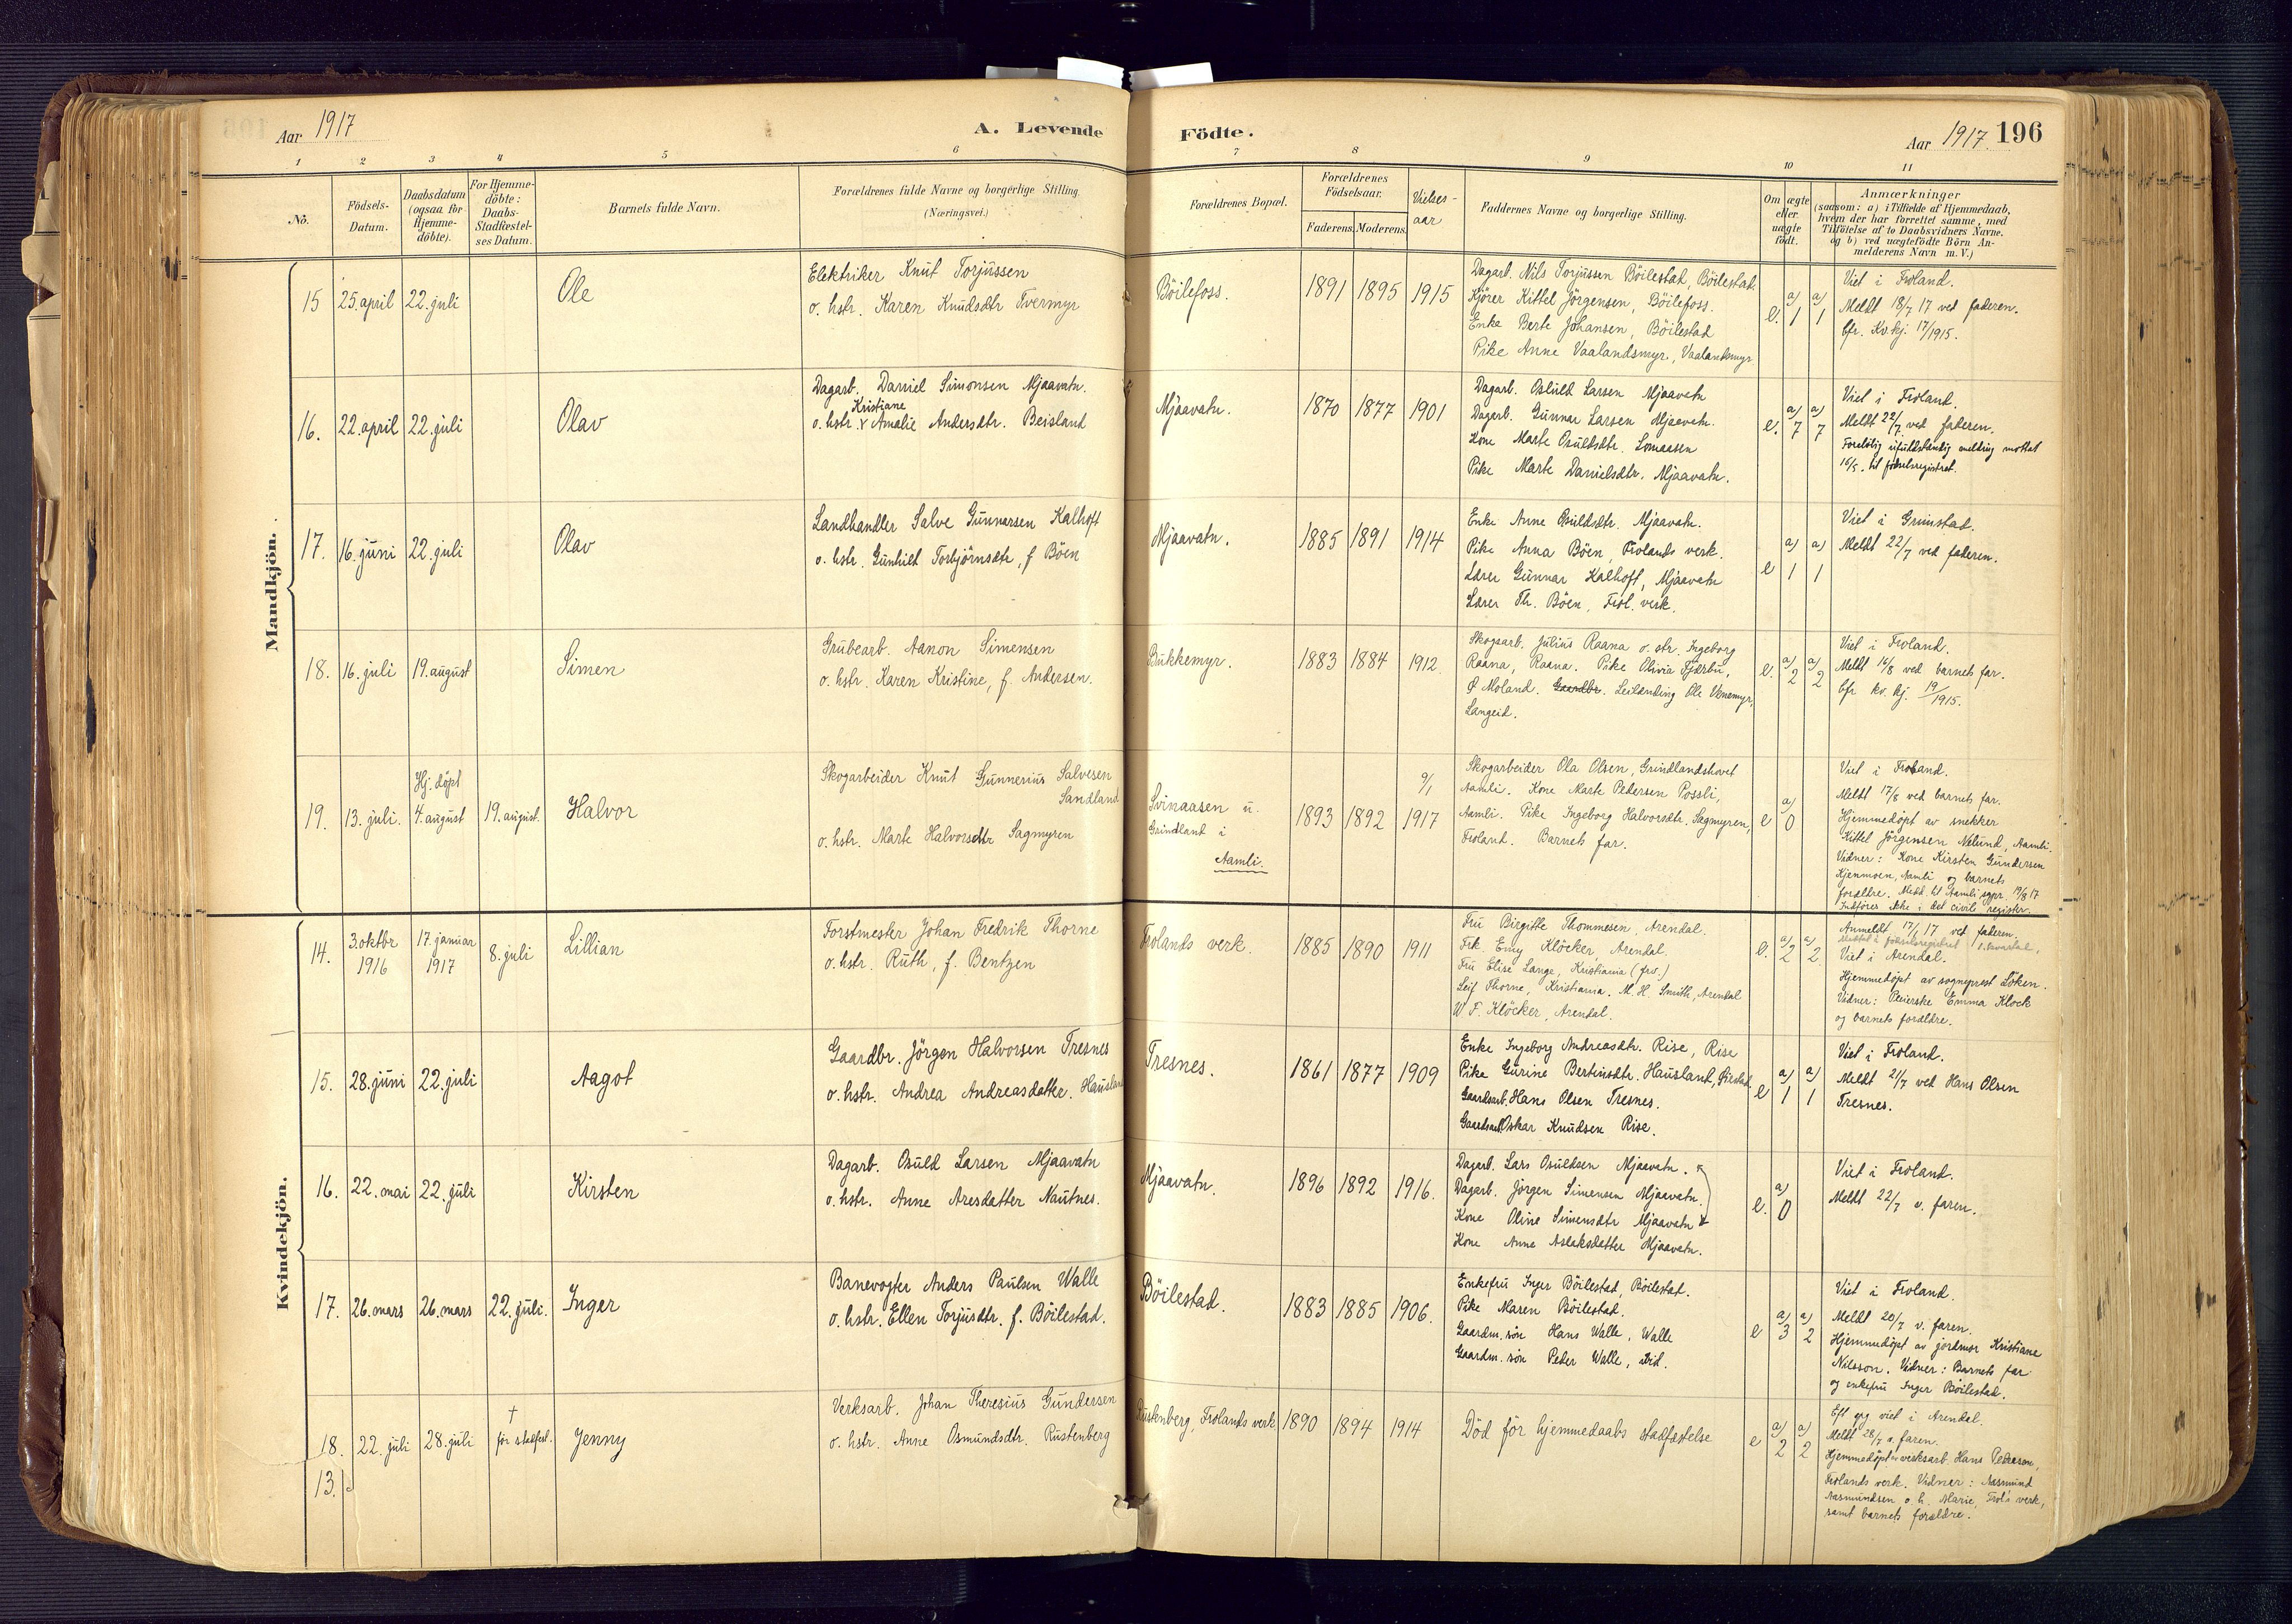 Aar 1917
A. Levende
Födte.
Aar 1917. 196
1 2 3 4 5 6 7 8 9 10 11
No.
Födsels-
Datum.
Daabsdatum
(ogsaa for
Hjemme-
döbte).
For Hjemme-
döbte:
Daabs-
Stadfæstel-
ses Datum.
Barnets fulde Navn.
Forældrenes fulde Navne og borgerlige Stilling.
(Næringsvei.)
Forældrenes Bopæl.
Forældrenes
Födselsaar.
Faderens. Moderens.
Vielses-
aar
Faddernes Navne og borgerlige Stilling.
Om ægte
eller
uægte
födt.
Anmærkninger
(saasom: a) i Tilfælde af Hjemmedaab,
hvem der har forrettet samme, med
Tilföielse af to Daabsvidners Navne.
og b) ved uægtefödte Börn An-
melderens Navn m. V.)
Mandkjön.
15 25. april 22. juli Ole
Elektriker Knut Torjussen
o. hstr. Karen Knudsdtr Tvermyr
Böilefoss. 1891 1895 1915
Dagarb. Nils Torjussen Böilestad, Böilestad.
Kjörer Kittel Jörgensen, Böilefoss.
Enke Berte Johansen, Böilestad
Pike Anne Vaalandsmyr, Vaalandsmyr
e. a) 1 a) 1
Viet i Froland.
Meldt 18/7 17 ved faderen.
Cfr. Kv. kj. 17/1915.
16. 22. april 22. juli Olav
Dagarb. Daniel Simonsen Mjaavatn.
Kristiane
o. hstr. v Amalie Andersdtr. Beisland
Mjaavatn. 1870 1877 1901
Dagarb. Osuld Larsen Mjaavatn
Dagarb. Gunnar Larsen Mjaavatn.
Kone Marte Osuldsdtr. Lomaasen
Pike Marte Danielsdtr. Mjaavatn.
e. a) 7 a) 7
Viet i Froland.
Meldt 22/7 ved faderen.
Foreløbig ufuldstændig melding mottat
16/5. til fødselsregistret.
17. 16. juni 22. juli Olav
Landhandler Salve Gunnarsen Kalhoft
o. hstr. Gunhild Torbjörnsdtr, f Böen
Mjaavatn. 1885 1891 1914
Enke Anne Osuldsdtr. Mjaavatn.
Pike Anna Böen, Frolands verk.
Lærer Gunnar Kalhoft, Mjaavatn
Lærer Th. Böen, Frol. verk.
e a) 1 a) 1
Viet i Grimstad.
Meldt 22/7 ved faderen.
18. 16. juli 19. august Simen
Grubearb. Aanon Simensen
o. hstr. Karen Kristine, f. Andersen.
Bukkemyr. 1883 1884 1912
Skogsarb. Julius Raana o. str. Ingeborg
Raana, Raana. Pike Olivia Fjærbu,
Ø Moland. Gaardbr. Leilænding Ole Venemyr,
Langeid.
e. a) 2 a) 2
Viet i Froland.
Meldt 16/8 ved barnets far.
Cfr kv. kj. 19/1915.
19. 13. juli. Hj. döpt
4. august 19. august. Halvor
Skogarbeider Knut Gunnerius Salvesen
Sandland
o. hstr. Marte Halvorsdtr Sagmyren
Svinaasen u.
Grindland i
Aamli.
1893 1892 9/1 1917
Skogarbeider Ola Olsen, Grindlandshovet
Aamli. Kone Marte Pedersen Possli,
Aamli. Pike Ingeborg Halvorsdtr. Sagmyren,
Froland. Barnets far.
e a) 0
Viet i Froland.
Meldt 17/8 ved barnets far.
Hjemmedöpt av snekker
Kittel Jörgensen Nelund, Aamli.
Vidner: Kone Kirsten Gundersen
Kjenmoen, Aamli og barnets
forældre. Medd. til Aamli sogpr. 19/8 17
Indföres ikke i det civile register.
Kvindekjön.
14. 3. oktbr 1916 17. januar 1917 8. juli Lillian
Forstmester Johan Fredrik Thorne
o. hstr. Ruth, f. Bentzen
Frolands verk. 1885 1890 1911
Fru Birgitte Thommesen, Arendal.
Frk. Emy Klöcker, Arendal.
Fru Elise Lange, Kristiania (frv.)
Leif Thorne, Kristiania. M. H. Smith, Arendal
W F. Klöcker, Arendal.
e. a) 2 a) 2.
Anmeldt 17/1 17 ved faderen.
Viet i Arendal.
Hjemmedöpt av sogneprest Löken.
Vidner: Pleierske Emma Klock
og barnets forældre.
15. 28. juni 22. juli Aagot
Gaardbr. Jörgen Halvorsen Tresnes
o. hstr. Andrea Andreasdatter. Hausland
Tresnes. 1861 1877 1909
Enke Ingeborg Andreasdtr. Rise, Rise
Pike Gurine Bertinsdtr. Hausland,
Gaardsarb. Hans Olsen Tresnes.
Gaardsarb. Oskar Knudsen Rise.
e a) 1 a) 1
Viet i Froland.
Meldt 21/7 ved Hans Olsen
Tresnes.
16. 22. mai 22. juli Kirsten
Dagarb. Osuld Larsen Mjaavatn
o. hstr. Anne Aresdatter Nautnes.
Mjaavatn. 1896 1892 1916.
Dagarb. Lars Osuldsen Mjaavatn.
Dagarb. Jörgen Simensen Mjaavatn.
Kone Oline Simensdtr Mjaavatn
Kone Anne Aslaksdatter Mjaavatn.
e. a) 0
Viet i Froland.
Meldt 22/7 v. faren.
17. 26. mars 26. mars 22. juli. Inger
Banevogter Anders Paulsen Walle
o. hstr. Ellen Torjusdtr. f. Böilestad.
Böilestad. 1883 1885 1906.
Enkefru Inger Böilestad, Böilestad.
Pike Maren Böilestad.
Gaardm. sön Hans Walle, Walle
Gaardm. sön Peder Walle, ibid.
e a) 3 a) 2
Viet i Froland.
Meldt 20/7 v. faren.
Hjemmedöpt av jordmor Kristiane
Nilsson. Vidner: Barnets far
og enkefru Inger Böilestad.
18. 22. juli 28. juli † för stadfæst. Jenny
Verksarb. Johan Theresius Gundersen
o. hstr. Anne Osmundsdtr. Rustenberg
Rustenberg, Frolands verk. 1890 1894 1914
Död för hjemmedaabs stadfæstelse
e a) 2 a) 2
Eft. gg viet i Arendal.
Meldt 28/7 a. faren.
Hjemmedöpt av verksarb. Hans Pedersen,
Frolands verk. Vidner: Aasmund
Aasmundsen o. h. Marie, Frol's verk,
samt barnets forældre.
13.